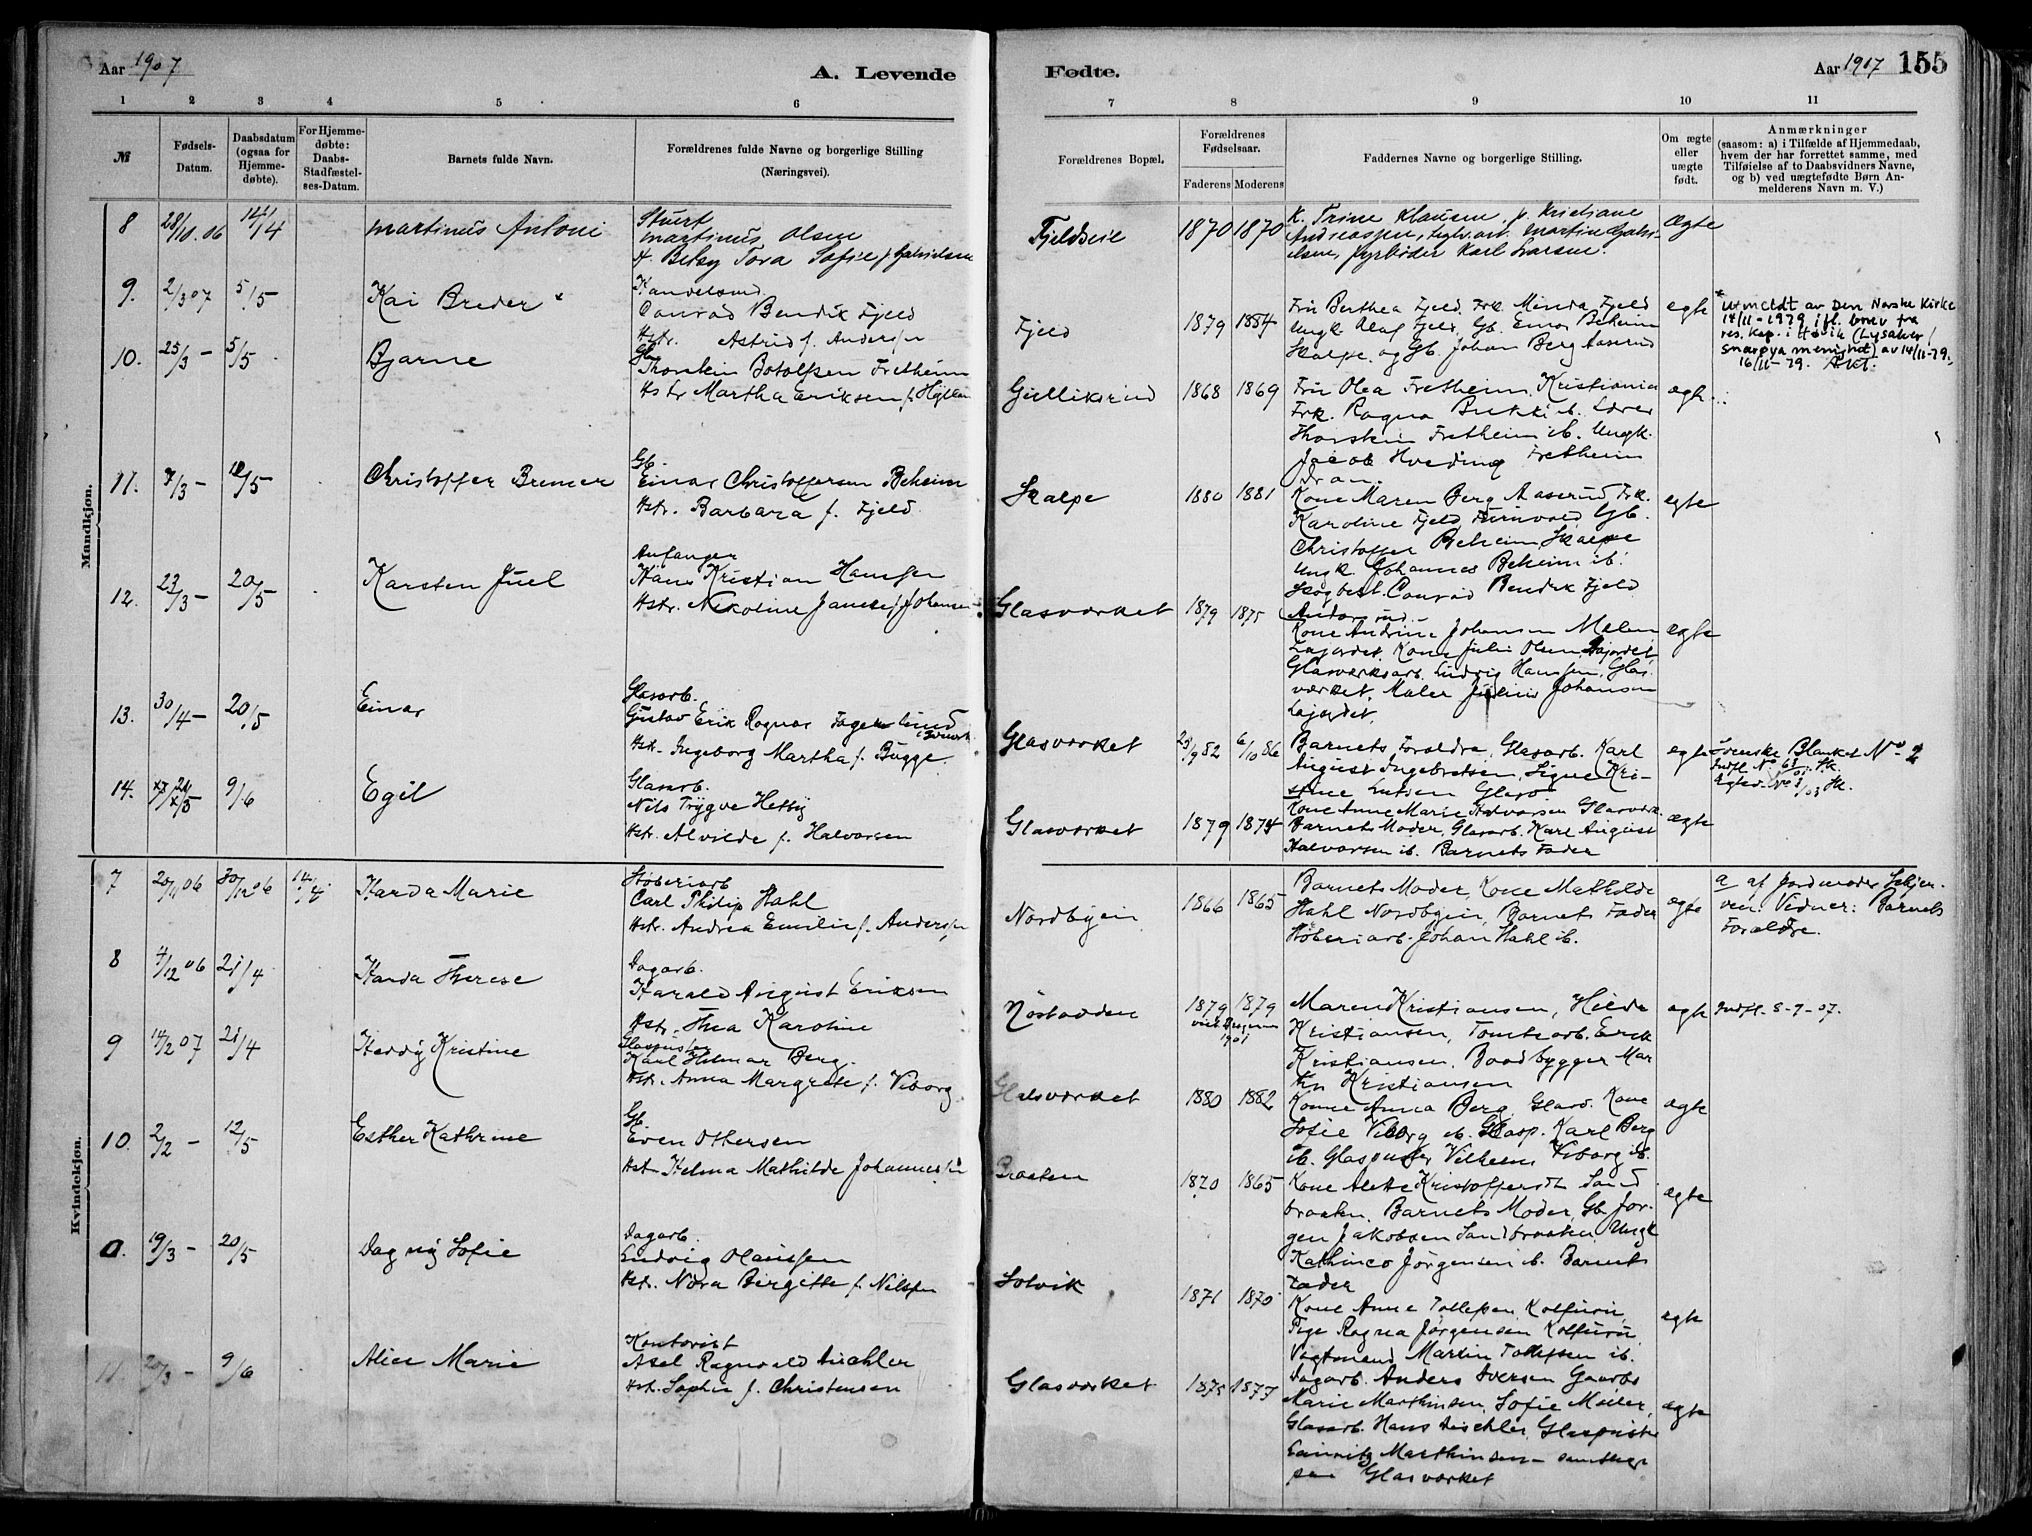 Aar 1907
A. Levende
Fødte.
Aar 1907
155
1 2 3 4 5 6
7 8 9 10 11
№
Fødsels-
Datum.
Daabsdatum
(ogsaa for
Hjemme-
døbte).
For Hjemme-
døbte:
Daabs-
Stadfæstel-
ses-Datum.
Barnets fulde Navn.
Forældrenes fulde Navne og borgerlige Stilling
(Næringsvei).
Forældrenes Bopæl.
Forældrenes
Fødselsaar.
Faderens Moderens
Faddernes Navne og borgerlige Stilling.
Om ægte
eller
uægte
født.
Anmærkninger
(saasom: a) i Tilfælde af Hjemmedaab,
hvem der har forrettet samme, med
Tilføielse af to Daabsvidners Navne,
og b) ved uægtefødte Børn An-
melderens Navn m. V.)
Mandkjøn.
8 28/10.06 14/4 Martinus Antoni
Stuert
Martinus Olsen
Betsy Tora Sofie f. Gabrielsen
Fjeldseie 1870 1870
K. Trine Klausen, p. Kristiane
Andreassen, Teglv.arb. Martin Gabri-
elsen, fyrbøder Karl Larsen.
Ægte
9. 2/3 07 5/5 Kai Breder *
Handelsmd.
Conrad Bendix Fjeld
Hstr. Astrid f. Andersen
Fjeld 1879 1884
Fru Berthea Fjeld, Frk. Minda Fjeld
Ungk Olaf Fjeld, Gb. Einar Beheim
Skalpe og Gb. Johan Berg Aaserud
egte
* utmeldt av Den Norske Kirke
14/11-1979 ifl. brev fra
res. kap. i Høvik (Lysaker/
Snarøya menighet) av 14/11-79.
16/11-79.
10. 25/3 – 5/5 Bjarne
Gb.
Thorstein Botolfsen Fretheim
Hstr Martha Eriksen f.
Gulliksrud 1868 1869
Fru Olea Fretheim, Kristiania
Frk. Ragna Bukki ib. Lærer
Thorstein Fretheim ib. Ungk.
Jacob Hveding Fretheim
egte
11. 7/3 – 12/5 Christoffer Bremer
Gb.
Einar Christoffersen Beheim
Hstr. Barbara f. Fjeld.
Skalpe 1880 1881
Kone Maren Berg Aaserud, Frk.
Karoline Fjeld, Furuvold, Gb.
Christoffer Beheim Skalpe
Ungk. Johannes Beheim ib.
Skogbest. Conrad Bendik Fjeld
egte
12. 23/3 – 20/5 Karsten Juel
Anfanger
Hans Kristian Hansen
Hstr. Nikoline Janese f. Johansen
Glasværket 1879 1875
Kone Andrine Johansen Melen
Lajordet, Kone Julie Olsen, Lajordet,
Glasværksarb. Ludvig Hansen, Glas-
værket, Maler Julius Johansen
Lajordet.
egte
13. 30/4 – 20/5 Einar
Glasarb.
Gustav Erik Ragnar Fagerlund
Hstr. Ingeborg Martha f. Bugge.
Glasværket 23/9 82 6/10 86
Barnets Forældre, Glasarb. Karl
August Ingebretsen, Signe Kri-
stine Larsen Glasv.
egte
Svenske Blanket No 2
14. 9/6 Egil
Glasarb.
Nils Trygve Hetby
Hstr. Alvilde f. Halvorsen
Glasværket 1879 1874
Kone Anne Marie Halvorsen Glasværk.
Barnets Moder, Glasarb. Karl August
Halvorsen ib. Barnets Fader
ægte
Kvindekjøn.
7 20/11 06 30/12 06 14/4 Harda Marie
Støberiarb
Carl Philip Hahl
Hstr. Andrea Emilie f. Andersen
Nordbyein 1866 1865
Barnets Moder, Kone Mathilde
Hahl Nordbyein, Barnets Fader
Støberiarb. Johan Hahl ib.
egte
a af Jordmoder Schjer-
ven. Vidner: Barnets
Forældre.
8 4/12 06 21/4 Harda Therese
Dagarb.
Harald August Eriksen
Hstr. Thea Karoline
Nøstodden 1879 1879
Maren Kristiansen, Hilda
Kristiansen, Tomtearb. Erik
Kristiansen, Baadbygger Mar-
tin Kristiansen
egte
Indfl. 8-7-07.
9 14/2 07 21/4 Heddy Kristine
Glaspuster
Karl Hilmar Berg.
Hstr. Anna Margrete f. Viborg
Glasværket 1880 1882
Kone Anna Berg, Glasv. Kone
Sofie Viborg ib. Glasp. Karl Berg
ib. Glaspuster Vilhelm Viborg ib.
ægte
10. 2/2 – 12/5 Esther Kathrine
Gb.
Even Ottersen
Hstr. Helma Mathilde Johannessen
Braaten 1870 1865
Kone Alette Kristoffersdt Sand-
braaten, Barnets Moder, Gb. Jør-
gen Jakobsen Sandbraaten, Ungk
Kathinco Jørgensen ib. Barnets
Fader
egte
19/3 – 20/5 Dagny Sofie
Dagarb.
Ludvig Olaussen
Hstr. Nora Birgitte f. Nilssen
Solvik 1871 1870
Kone Anne Tollefsen Kolfuru,
Pige Ragna Jørgensen Kolfuru,
Vogtmand Martin Tollefsen ib.
Dagarb. Anders Iversen
egte
11. 20/3 – 9/6 Alice Marie
Kontorist
Axel Ragnvald Aischler
Hstr. Sophie f. Christensen
Glasværket 1875 1877
Marie Marthinsen, Sofie Møller,
Glasarb. Hans Aischler, Glaspuster
Lauritz Marthinsen – samtlige
paa Glasværket
egte